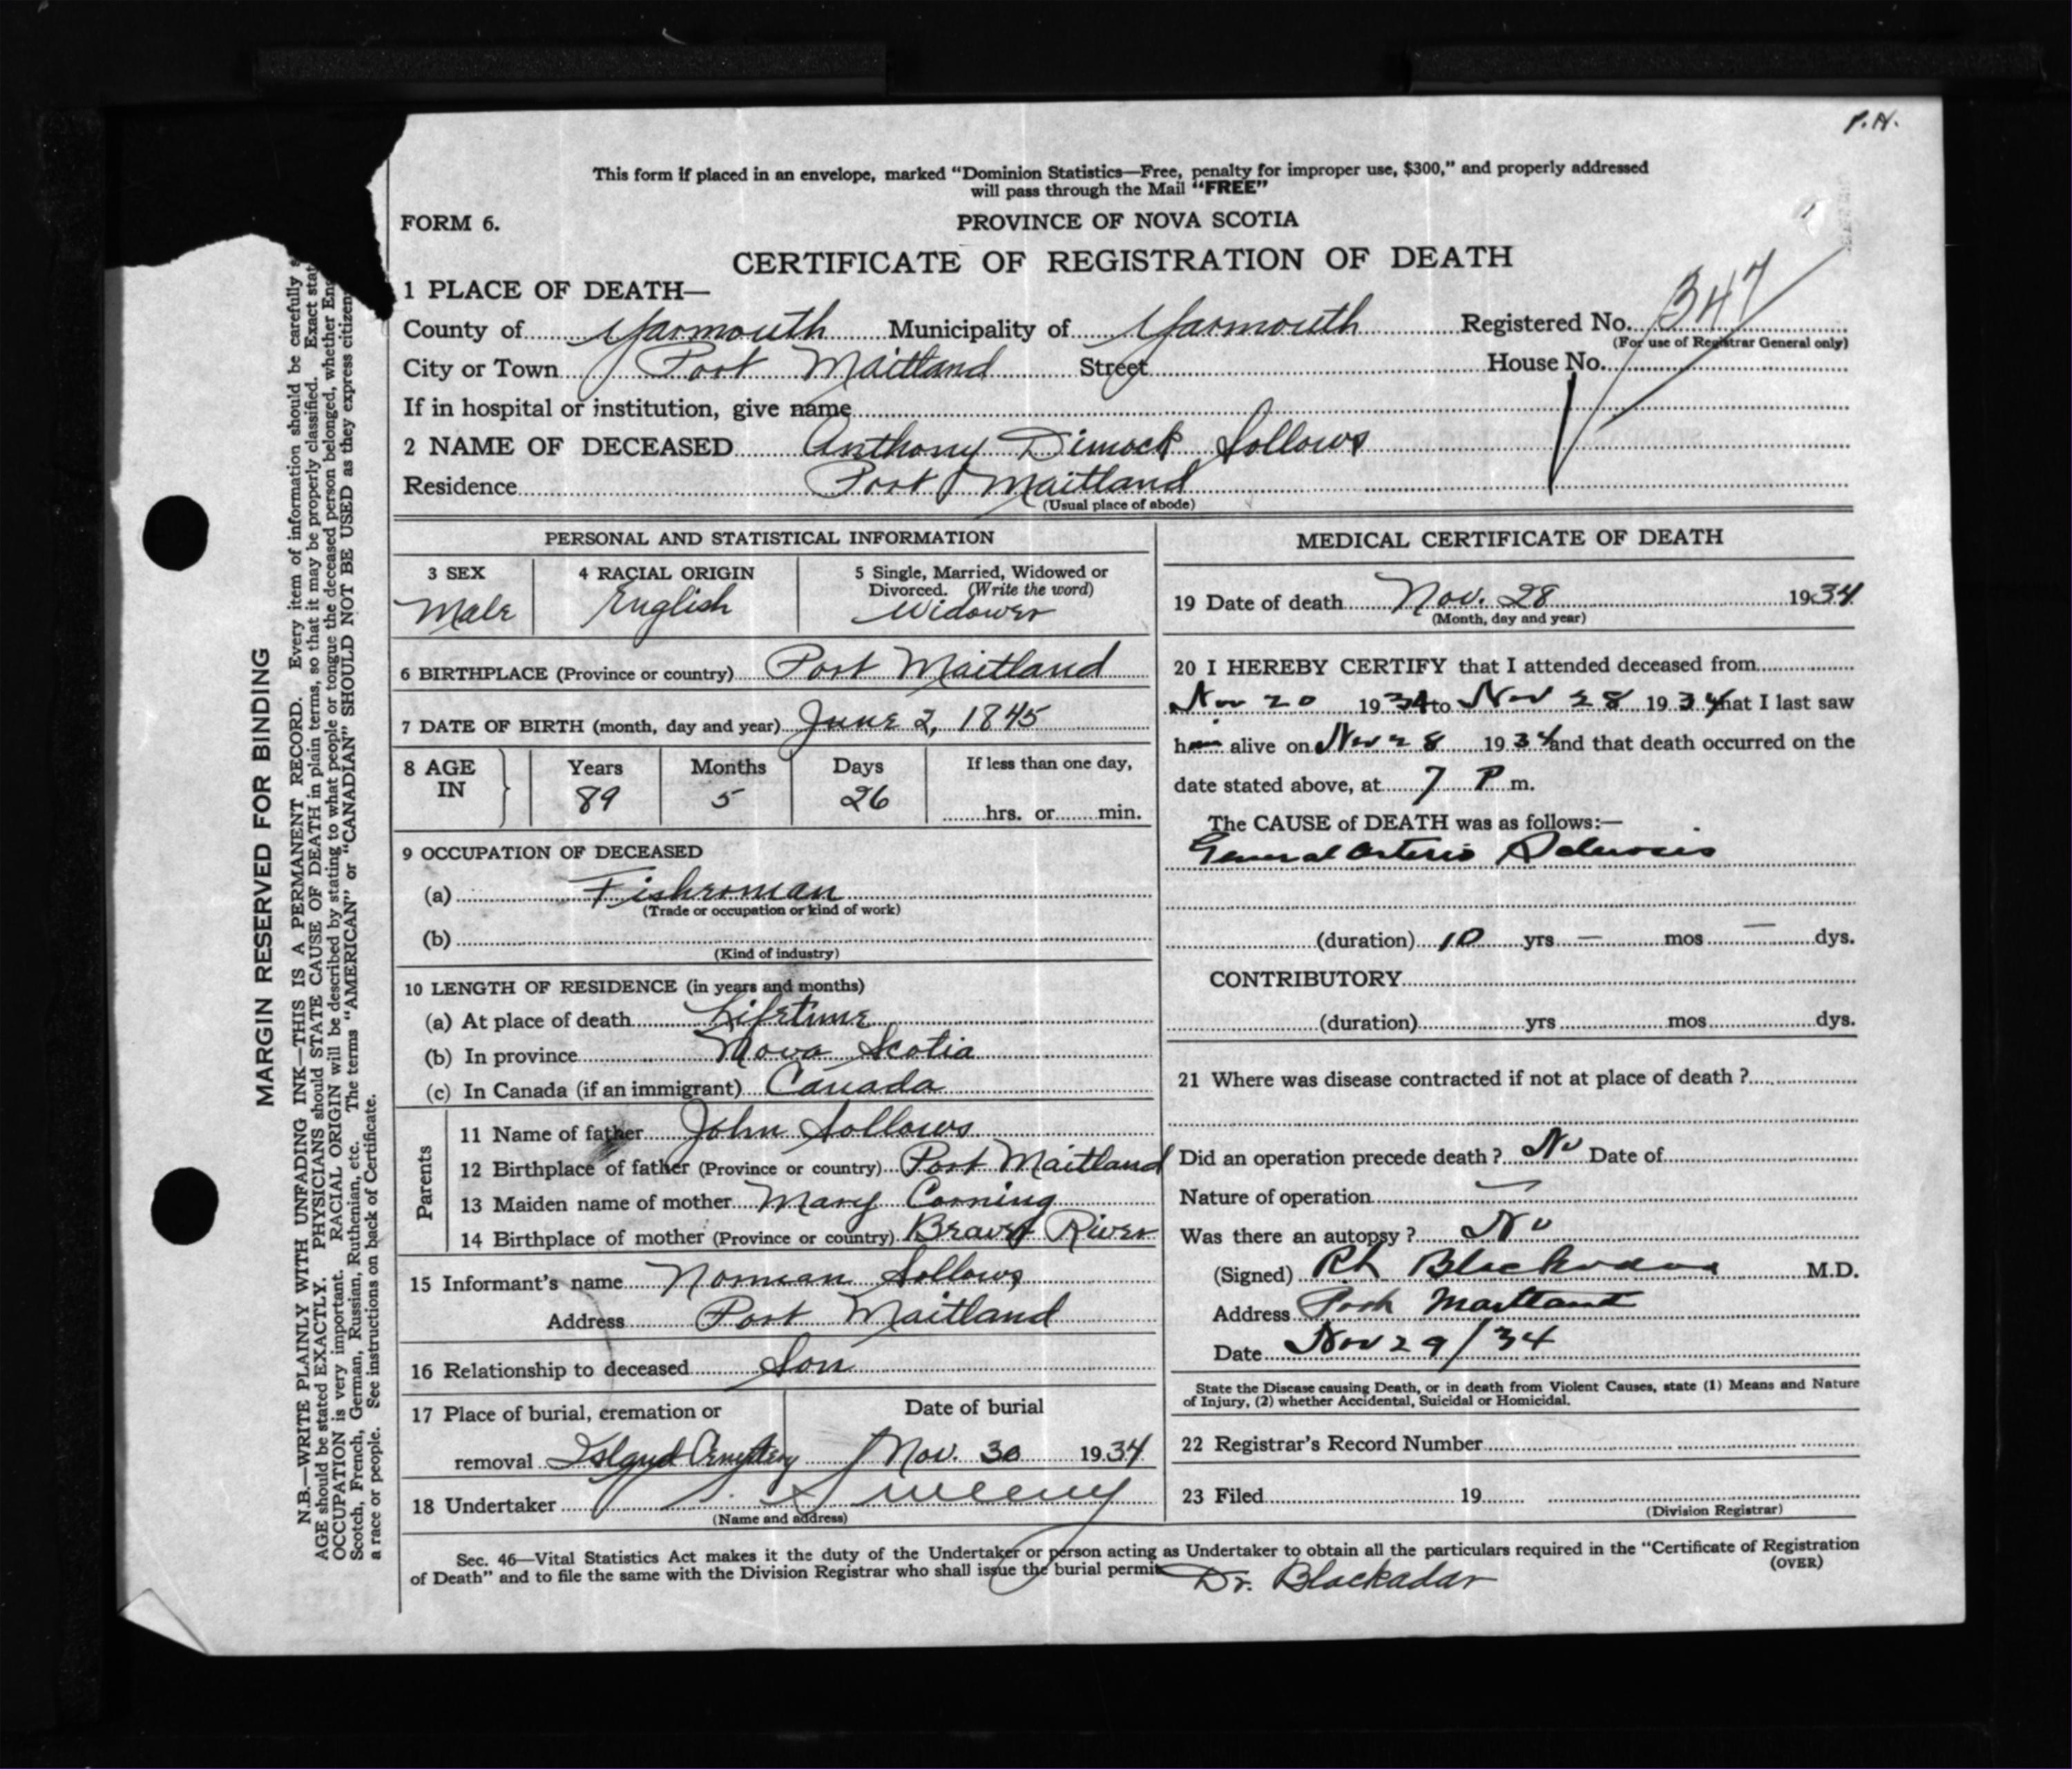 P.N.
This form if placed in an envelope, marked "Dominion Statistics—Free, penalty for improper use, $300," and properly addressed
will pass through the Mail "FREE"
FORM 6.
PROVINCE OF NOVA SCOTIA
CERTIFICATE OF REGISTRATION OF DEATH
1 PLACE OF DEATH—
County of Yarmouth Municipality of Yarmouth Registered No. 347
(For use of Registrar General only)
City or Town Port Maitland Street House No.
If in hospital or institution, give name
2 NAME OF DECEASED Anthony Dimock Sollows
Residence Port Maitland
(Usual place of abode)
PERSONAL AND STATISTICAL INFORMATION
3 SEX
Male
4 RACIAL ORIGIN
English
5 Single, Married, Widowed or
Divorced. (Write the word)
Widower
6 BIRTHPLACE (Province or country) Port Maitland
7 DATE OF BIRTH (month, day and year) June 2, 1845
8 AGE
IN
Years
89
Months
5
Days
26
If less than one day,
hrs. or min.
9 OCCUPATION OF DECEASED
(a) Fishroman
(Trade or occupation or kind of work)
(b)
(Kind of industry)
10 LENGTH OF RESIDENCE (in years and months)
(a) At place of death Lifetime
(b) In province Nova Scotia
(c) In Canada (if an immigrant) Canada
Parents
11 Name of father John Sollows
12 Birthplace of father (Province or country) Port Maitland
13 Maiden name of mother Mary Corning
14 Birthplace of mother (Province or country) River
15 Informant's name Norman Sollows
Address Port Maitland
16 Relationship to deceased Son
17 Place of burial, cremation or
removal Island Cemetery
Date of burial
Nov. 30 1934
18 Undertaker Sweeny
(Name and address)
MEDICAL CERTIFICATE OF DEATH
19 Date of death Nov. 28 1934
(Month, day and year)
20 I HEREBY CERTIFY that I attended deceased from
Nov 20 1934 to Nov 28 1934 that I last saw
him alive on Nov 28 1934 and that death occurred on the
date stated above, at 7 P m.
The CAUSE of DEATH was as follows:—
General Arterio Sclerosis
(duration) 10 yrs — mos — dys.
CONTRIBUTORY
(duration) yrs mos dys.
21 Where was disease contracted if not at place of death ?
Did an operation precede death ? No Date of
Nature of operation —
Was there an autopsy ? No
(Signed) Blackadar M.D.
Address Port Maitland
Date Nov 29/34
State the Disease causing Death, or in death from Violent Causes, state (1) Means and Nature
of Injury, (2) whether Accidental, Suicidal or Homicidal.
22 Registrar's Record Number
23 Filed 19
(Division Registrar)
Sec. 46—Vital Statistics Act makes it the duty of the Undertaker or person acting as Undertaker to obtain all the particulars required in the "Certificate of Registration
of Death" and to file the same with the Division Registrar who shall issue the burial permit
(OVER)
Dr. Blackadar
MARGIN RESERVED FOR BINDING
N.B.—WRITE PLAINLY WITH UNFADING INK—THIS IS A PERMANENT RECORD. Every item of information should be carefully
AGE should be stated EXACTLY. PHYSICIANS should STATE CAUSE OF DEATH in plain terms, so that it may be properly classified. Exact stat
OCCUPATION is very important. RACIAL ORIGIN will be described by stating to what people or tongue the deceased person belonged, whether Eng
Scotch, French, German, Russian, Ruthenian, etc. The terms "AMERICAN" or "CANADIAN" SHOULD NOT BE USED as they express citizen
a race or people. See instructions on back of Certificate.